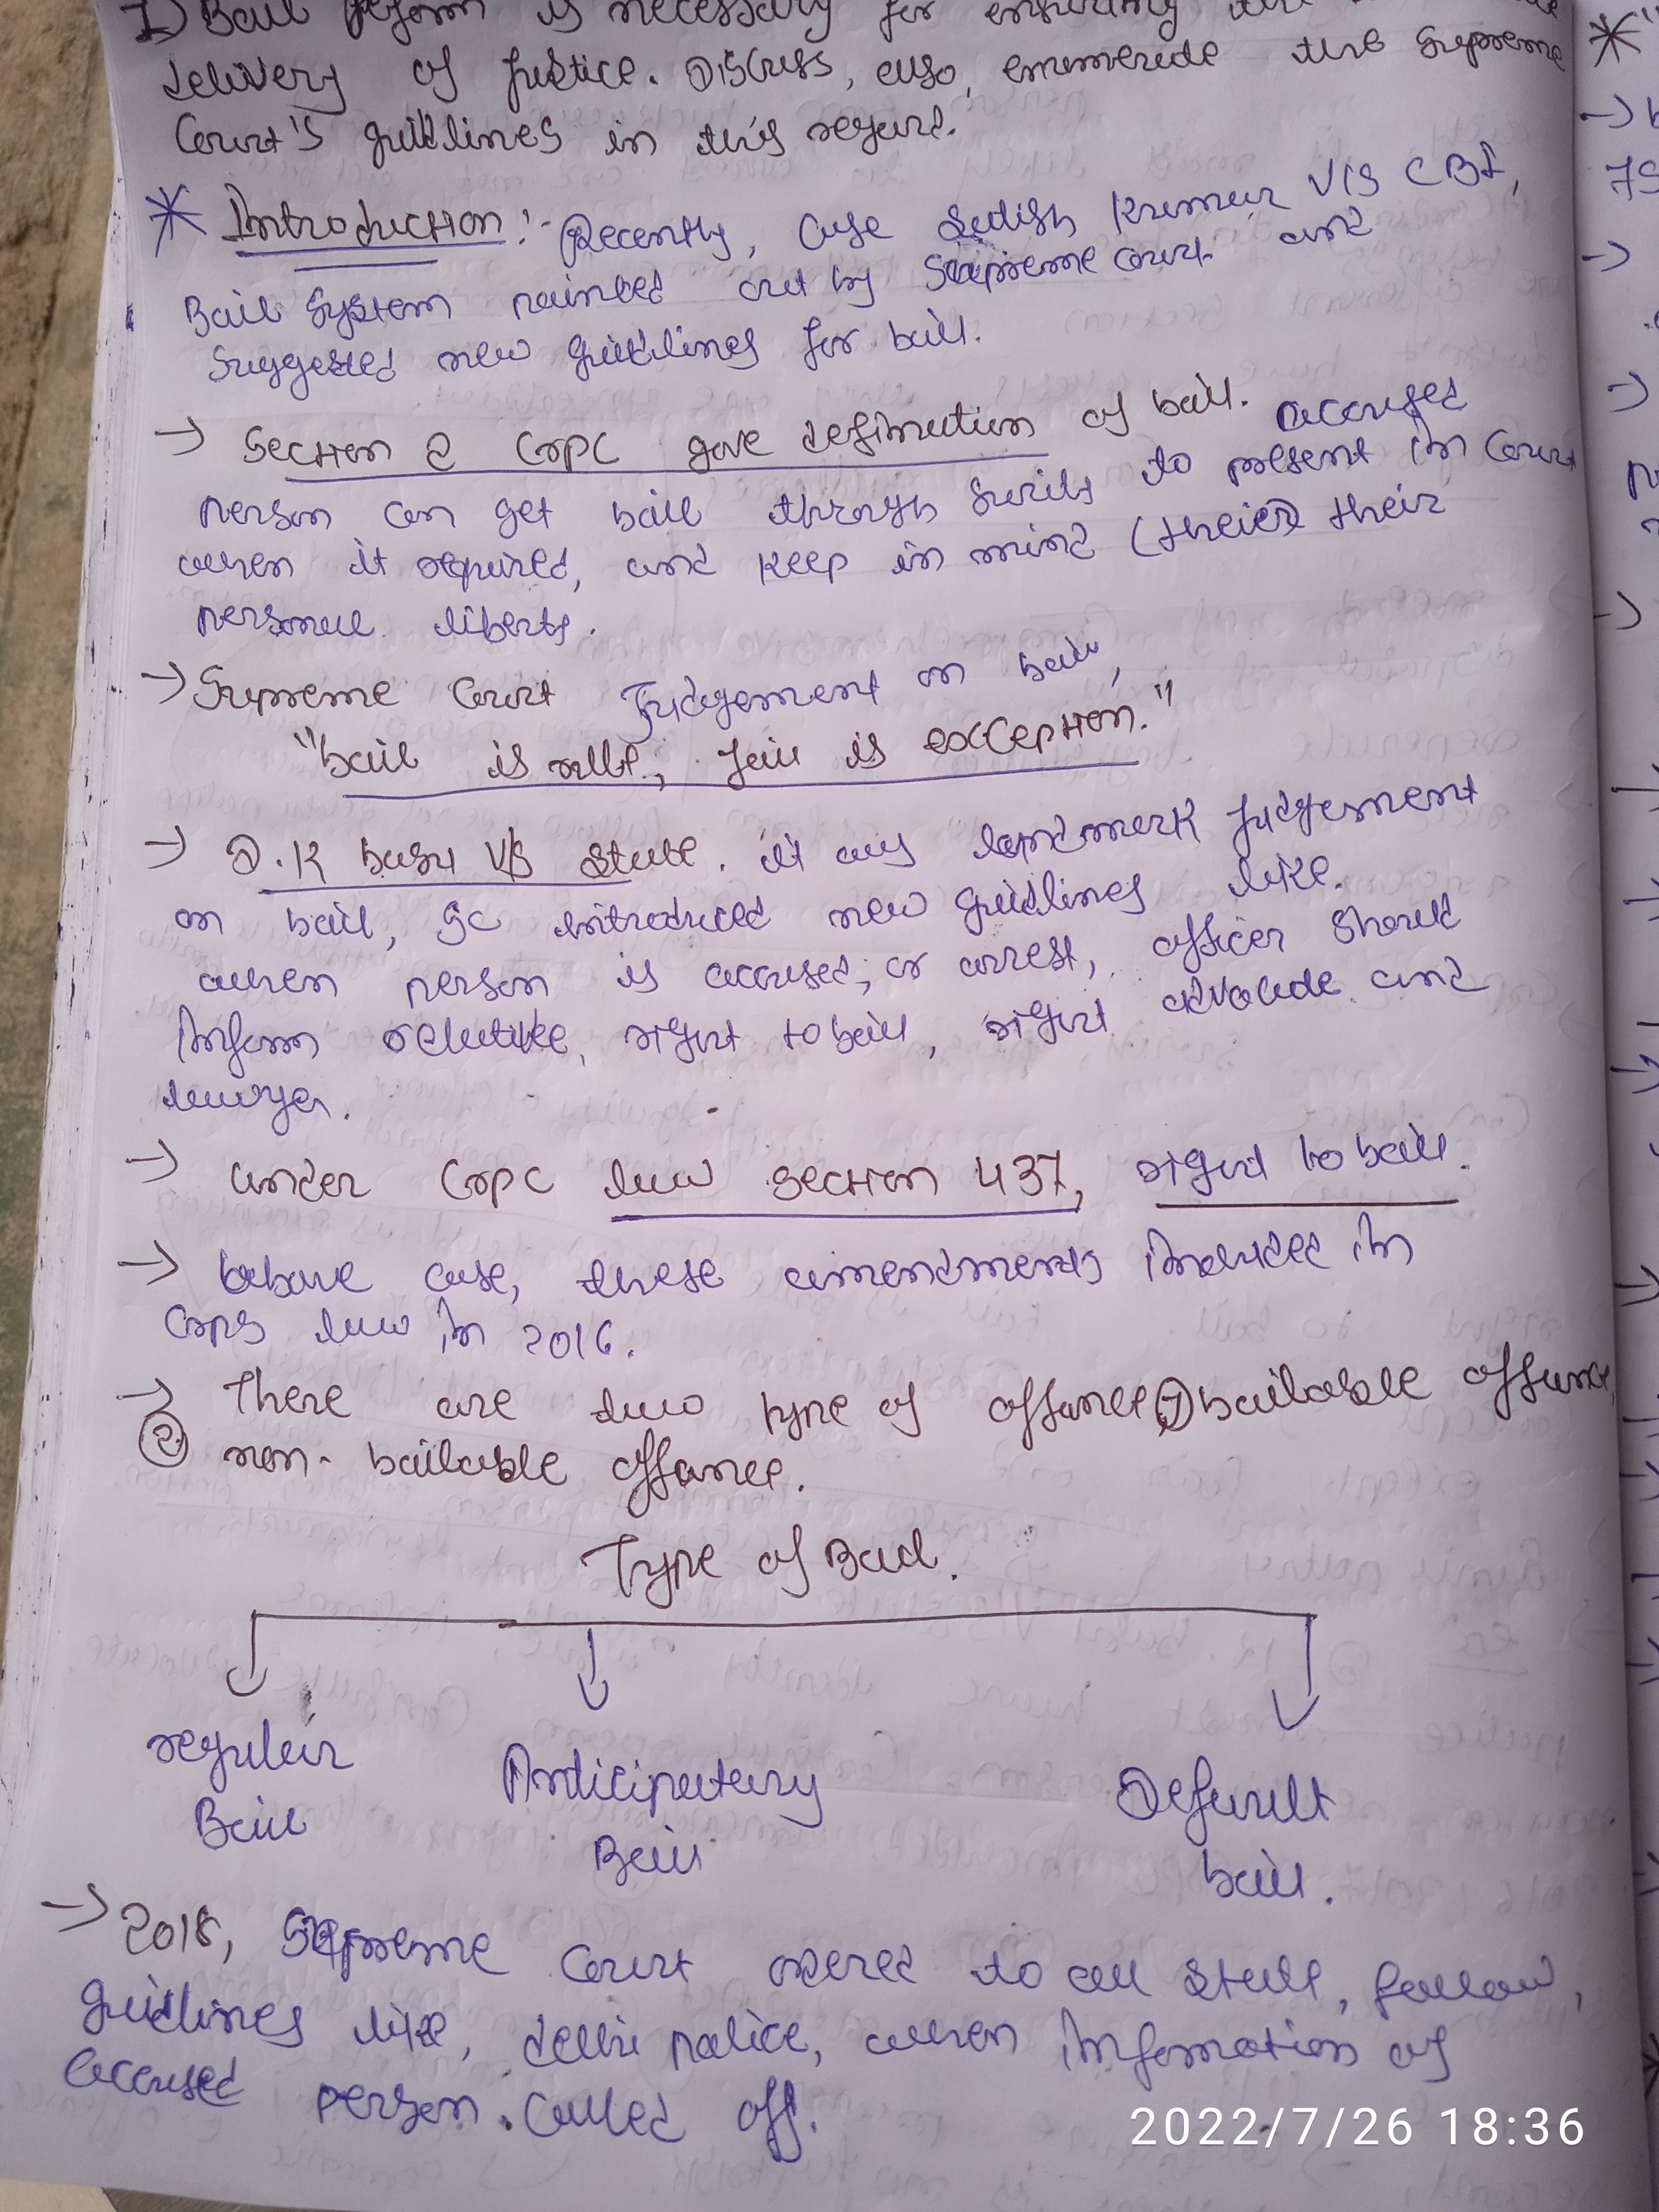 1) Bail reform is necessary for ensuring the
delivery of justice. Discuss, also, enumerate the Supreme
Court's guidlines in this regard.
* Introduction :- Recently, case Satish Kumar V/S CBI,
Bail System pointed out by Supreme court and
suggested new guidlines for bail.
→ Section 2 CrPC gave defination of bail. accused
person can get bail through surity to present in Court
when it required, and keep in mind (theier) their
personal liberty.
→ Supreme Court Judgement on bail,
"bail is rule, jail is exception."
→ D.K basu V/S State. it was landmark judgement
on bail, SC introduced new guidlines like.
when person is accused, or arrest, officer should
inform relative, right to bail, right advocate and
lawyer.
→ under CrPC law section 437, right to bail.
→ above case, these amendments included in
CrPC law in 2016.
→ There are two type of offance ① bailable offance,
② non-bailable offance.
Type of Bail.
regular
Bail
Anticipatary
Bail
Default
bail.
→ 2018, Supreme Court ordered to all state, follow,
guidlines like, delhi police, when information of
accused person. called off.
2022/7/26 18:36